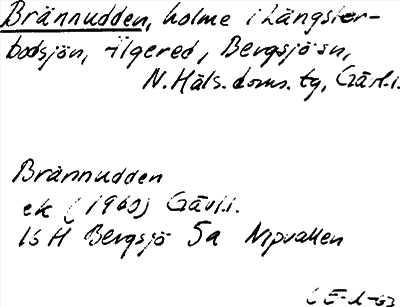 Brännudden, holme i Längster-
bodsjön, Ilgered, Bergsjö sn,
N. Häls. doms. tg, Gävl.l.
Brännudden
ek (1960) Gävl.l.
16 H Bergsjö 5a Nipvallen